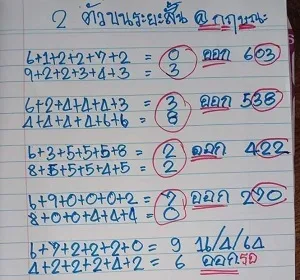 2 ตัวบนระยะสั้น @กฤษณะ
6+1+2+2+7+2 = 0 ออก 603
9+2+2+3+4+3 = 3
6+2+4+4+4+3 = 3 ออก 538
4+4+4+4+6+6 = 8
6+3+5+5+5+8 = 2 ออก 422
8+5+5+5+4+5 = 2
6+9+0+0+0+2 = 7 ออก 270
8+0+0+4+4+4 = 0
6+7+2+2+2+0 = 9 16/4/64
4+2+2+2+4+2 = 6 ออกรอ